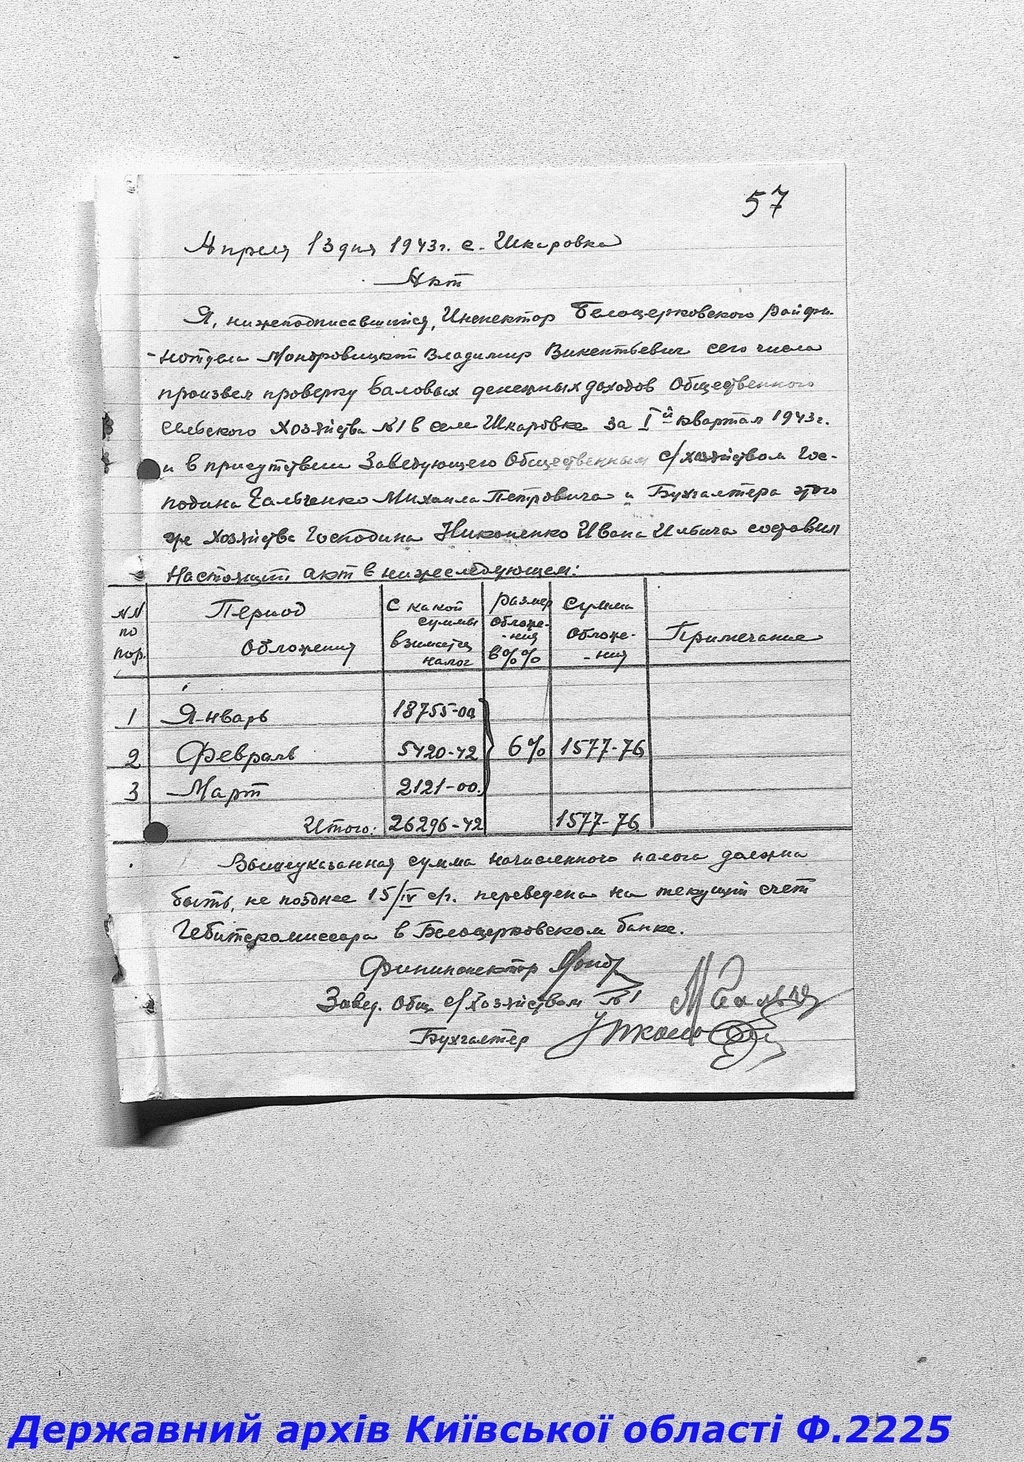 57
Апреля 13 дня 1943г. с. Шкаровка
Акт
Я, нижеподписавшийся, Инспектор Белоцерковского райфи-
-нотдела Владимир Викентьевич сего числа
произвел проверку валовых денежных доходов Общественного
сельского Хозяйства №1 в селе Шкаровке за I й квартал 1943г.
и в присутствии Заведующего Общественным с/хозяйством Гос-
подина Гальченко Михаила Петровича и Бухгалтера этого
же Хозяйства Господина Никоненко Ивана Ильича составил
Настоящий акт в нижеследующем:
№№ по пор. Период Обложения С какой суммы взимается налог Размер обложе-ния в %% Сумма Обложе-ния Примечание
1 Январь 18755-00
2 Февраль 5420-42 6% 1577-76
3 Март 2121-00
Итого: 26296-42 1577-76
Вышеуказанная сумма начисленного налога должна
быть, не позднее 15/IV с/г. переведена на текущий счет
Гебитскомиссара в Белоцерковском банке.
Фининспектор
Завед. Общ. с/хозяйством №1
Бухгалтер
Державний архів Київської області Ф.2225